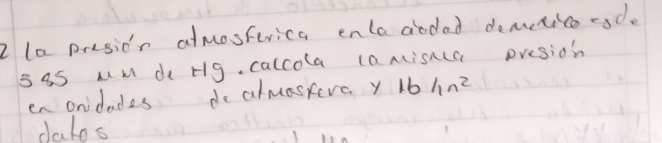 2 la presión atmosferica en la ciodad de mexico es de
585 mm de Hg. calcola la misma presion
en onidades de atmosfera y lb/in²
datos